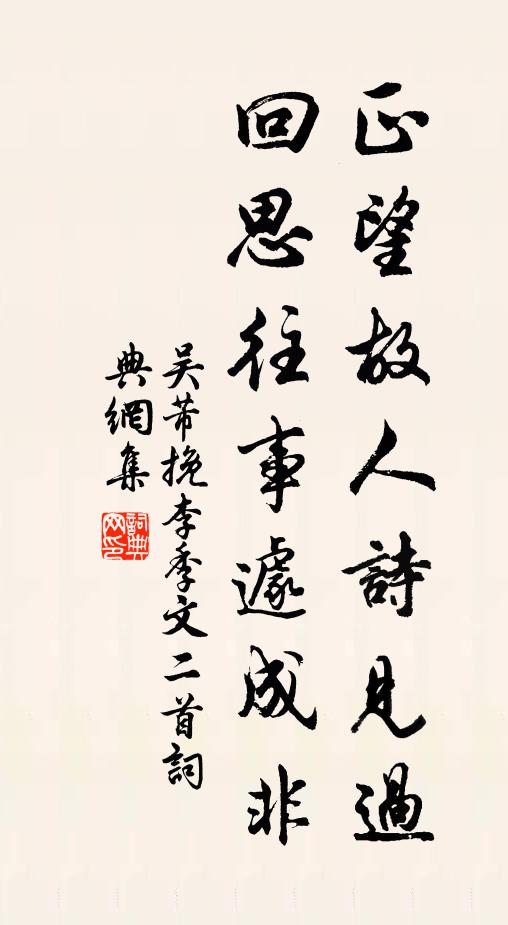 正望故人詩見過
回思往事遽成非
吴芾挽李季文二首詞
典網集
詞典網印